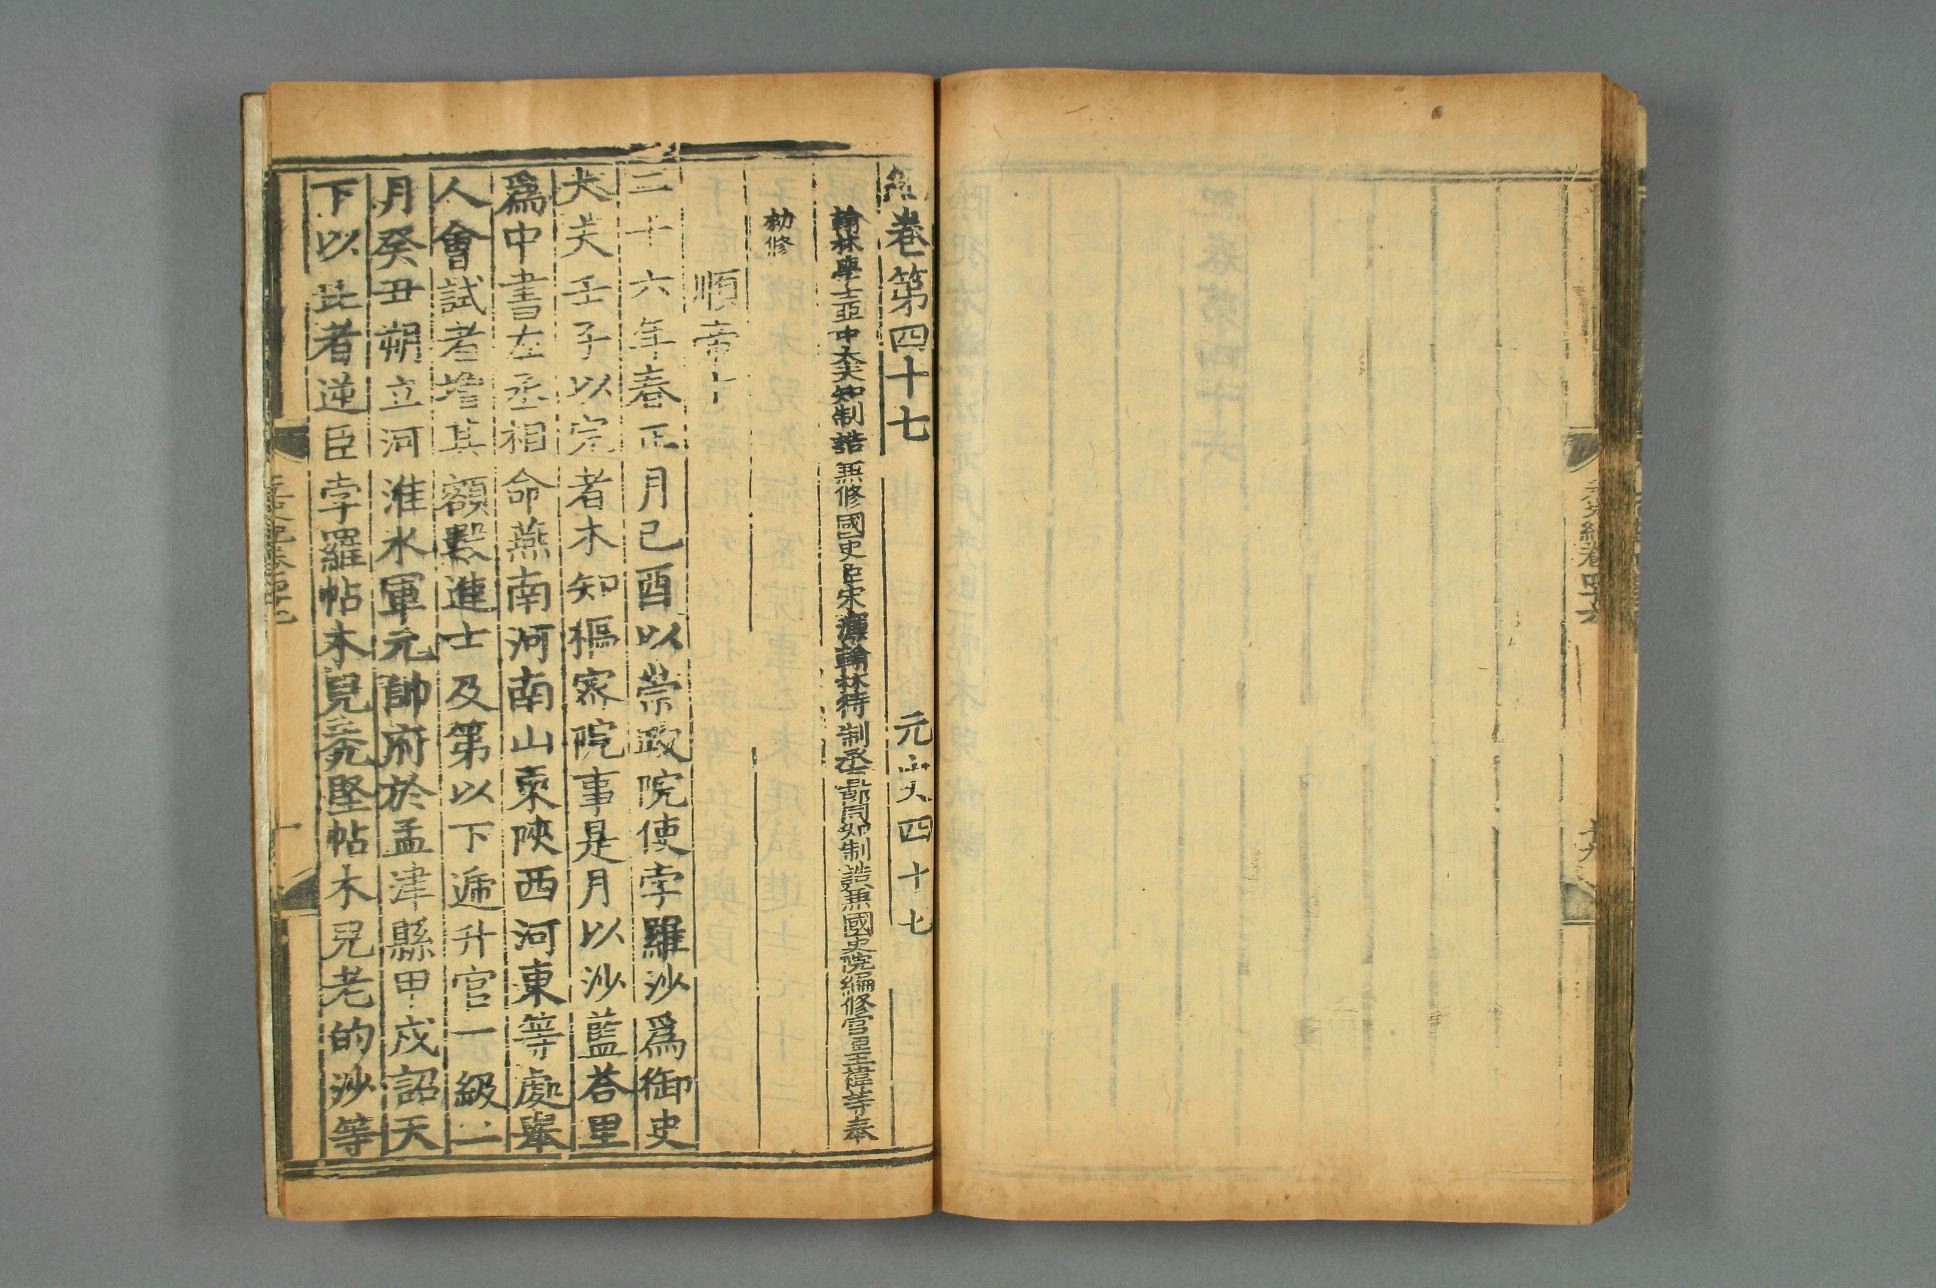 元史紀卷四十六
紀卷第四十七 元史四十七
翰林學士亞中大夫知制誥兼修國史臣宋濂翰林待制承直郎同知制誥兼國史院編修官臣王禕等奉
勑修
順帝十
二十六年春正月己酉以崇政院使孛羅沙爲御史
大夫壬子以完者木知樞宻院事是月以沙藍荅里
爲中書左丞相命燕南河南山東陜西河東等處舉
人會試者增其額數進士及第以下遞升官一級二
月癸丑朔立河淮水軍元帥府於孟津縣甲戌詔天
下以比者逆臣孛羅帖木兒禿堅帖木兒老的沙等
元史紀卷四十七
一